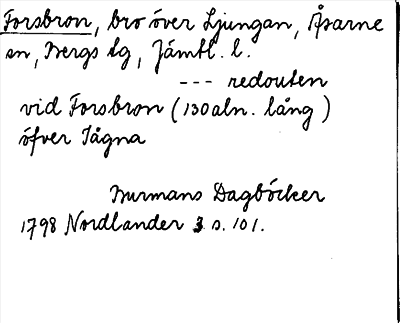 Forsbron, bro över Ljungan, Åsarne
sn, Bergs tg, Jämtl. l.
--- redouten
vid Forsbron (130 aln. lång)
öfver Tågna
Burmans Dagböcker
1798 Nordlander 3 s. 101.